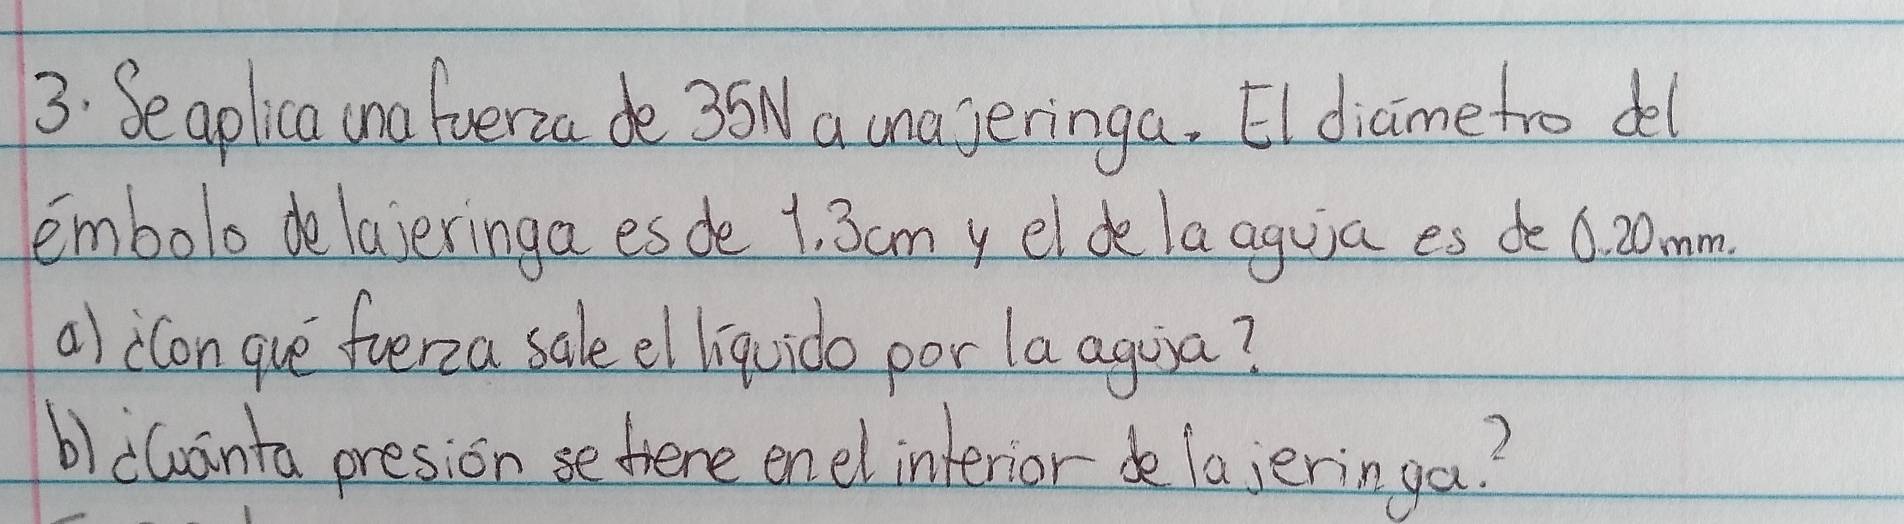 3. Se aplica una fuerza de 35N a una jeringa. El diámetro del
émbolo de la jeringa es de 1.3cm y el de la aguja es de 0.20mm.
a) ¿Con qué fuerza sale el líquido por la aguja?
b) ¿Cuánta presión se tiene en el interior de la jeringa.?